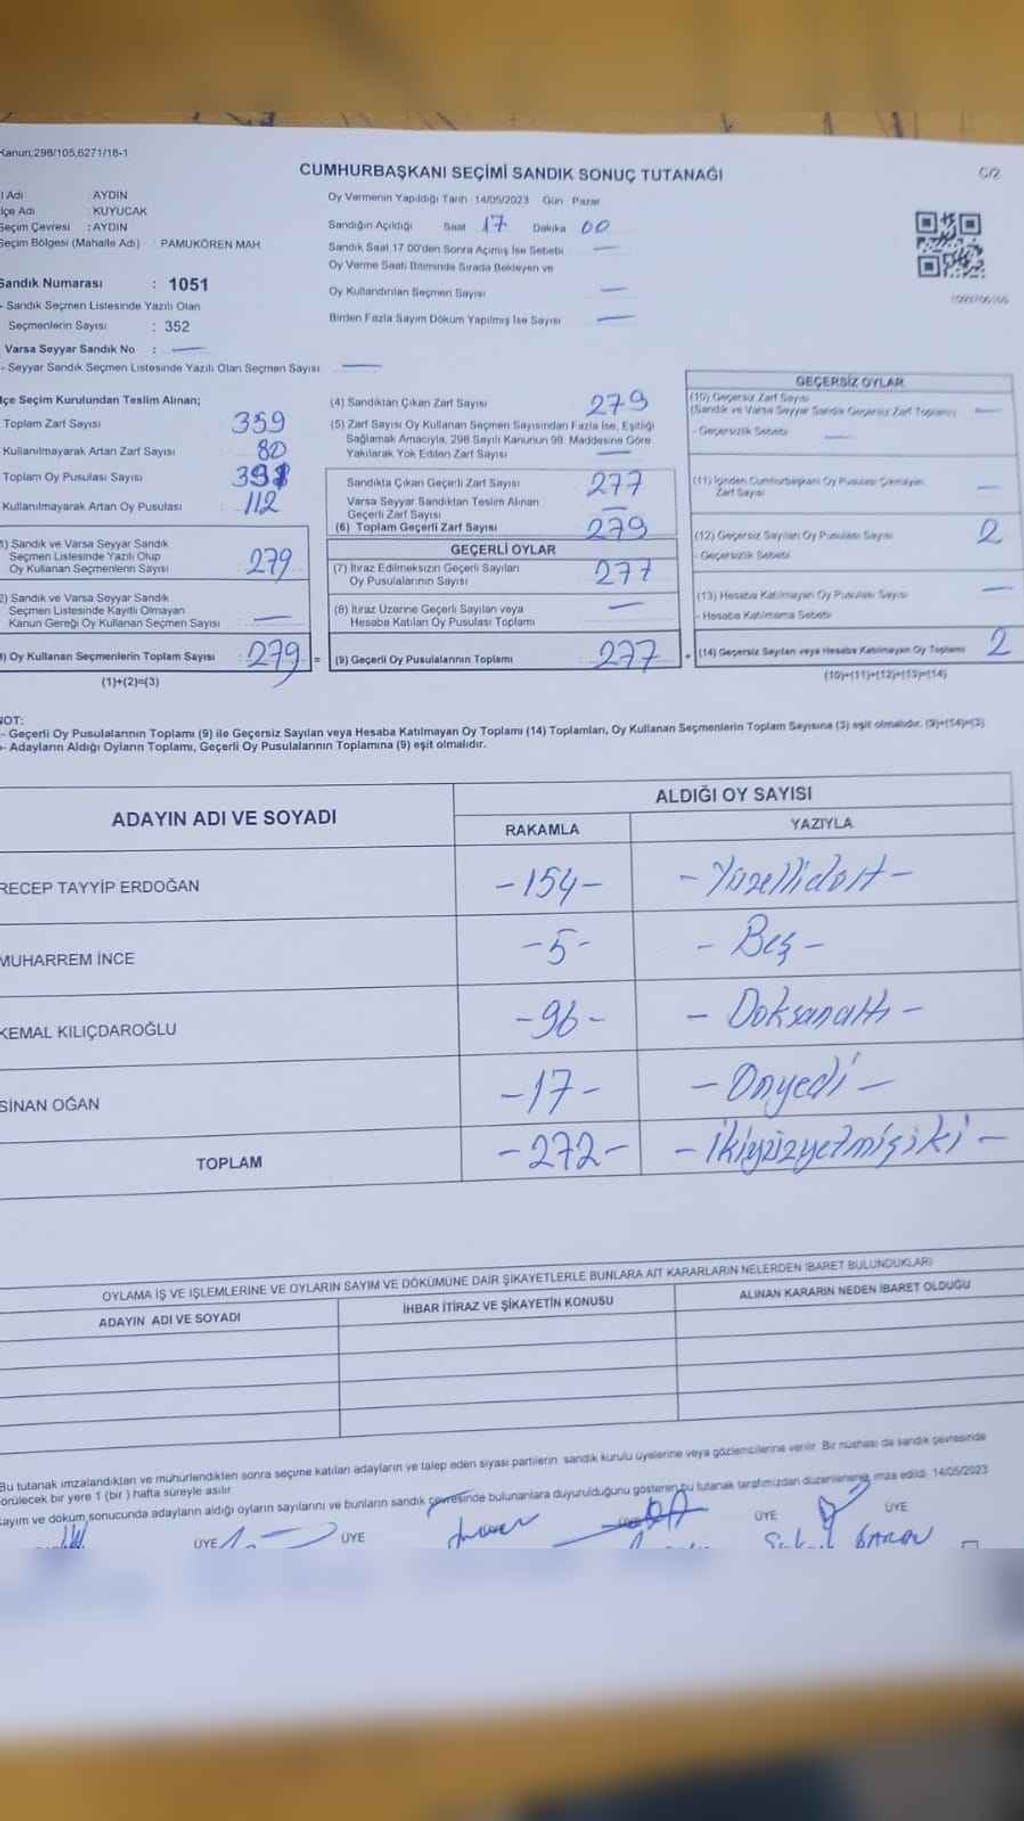 Kanun;298/105,6271/18-1
CUMHURBAŞKANI SEÇİMİ SANDIK SONUÇ TUTANAĞI
C/2
l Adı AYDIN
lçe Adı KUYUCAK
Seçim Çevresi : AYDIN
Seçim Bölgesi (Mahalle Adı) PAMUKÖREN MAH.
Sandık Numarası : 1051
- Sandık Seçmen Listesinde Yazılı Olan
Seçmenlerin Sayısı : 352
Varsa Seyyar Sandık No : —
- Seyyar Sandık Seçmen Listesinde Yazılı Olan Seçmen Sayısı —
Oy Vermenin Yapıldığı Tarih : 14/05/2023 Gün Pazar
Sandığın Açıldığı Saat 17 Dakika 00
Sandık Saat 17.00'den Sonra Açılmış İse Sebebi —
Oy Verme Saati Bitiminde Sırada Bekleyen ve
Oy Kullandırılan Seçmen Sayısı —
Birden Fazla Sayım Döküm Yapılmış İse Sayısı —
lçe Seçim Kurulundan Teslim Alınan;
Toplam Zarf Sayısı 359
Kullanılmayarak Artan Zarf Sayısı 80
Toplam Oy Pusulası Sayısı
Kullanılmayarak Artan Oy Pusulası 112
1) Sandık ve Varsa Seyyar Sandık
Seçmen Listesinde Yazılı Olup
Oy Kullanan Seçmenlerin Sayısı 279
2) Sandık ve Varsa Seyyar Sandık
Seçmen Listesinde Kayıtlı Olmayan
Kanun Gereği Oy Kullanan Seçmen Sayısı —
) Oy Kullanan Seçmenlerin Toplam Sayısı 279 =
(1)+(2)=(3)
(4) Sandıktan Çıkan Zarf Sayısı 279
(5) Zarf Sayısı Oy Kullanan Seçmen Sayısından Fazla İse, Eşitliği
Sağlamak Amacıyla, 298 Sayılı Kanunun 98. Maddesine Göre
Yakılarak Yok Edilen Zarf Sayısı —
Sandıkta Çıkan Geçerli Zarf Sayısı 277
Varsa Seyyar Sandıktan Teslim Alınan
Geçerli Zarf Sayısı —
(6) Toplam Geçerli Zarf Sayısı 279
GEÇERLİ OYLAR
(7) İtiraz Edilmeksizin Geçerli Sayılan
Oy Pusulalarının Sayısı 277
(8) İtiraz Üzerine Geçerli Sayılan veya
Hesaba Katılan Oy Pusulası Toplamı —
(9) Geçerli Oy Pusulalarının Toplamı 277
GEÇERSİZ OYLAR
(10) Geçersiz Zarf Sayısı
(Sandık ve Varsa Seyyar Sandık Geçersiz Zarf Toplamı) —
- Geçersizlik Sebebi —
(11) İçinden Cumhurbaşkanı Oy Pusulası Çıkmayan
Zarf Sayısı —
(12) Geçersiz Sayılan Oy Pusulası Sayısı 2
- Geçersizlik Sebebi
(13) Hesaba Katılmayan Oy Pusulası Sayısı —
- Hesaba Katılmama Sebebi
(14) Geçersiz Sayılan veya Hesaba Katılmayan Oy Toplamı 2
(10)+(11)+(12)+(13)=(14)
NOT:
- Geçerli Oy Pusulalarının Toplamı (9) ile Geçersiz Sayılan veya Hesaba Katılmayan Oy Toplamı (14) Toplamları, Oy Kullanan Seçmenlerin Toplam Sayısına (3) eşit olmalıdır. (9)+(14)=(3)
- Adayların Aldığı Oyların Toplamı, Geçerli Oy Pusulalarının Toplamına (9) eşit olmalıdır.
ADAYIN ADI VE SOYADI ALDIĞI OY SAYISI
RAKAMLA YAZIYLA
RECEP TAYYİP ERDOĞAN -154- - Yüzellidört -
MUHARREM İNCE -5- - Beş -
KEMAL KILIÇDAROĞLU -96- - Doksanaltı -
SİNAN OĞAN -17- - Onyedi -
TOPLAM -272- - İkiyüzyetmişiki -
OYLAMA İŞ VE İŞLEMLERİNE VE OYLARIN SAYIM VE DÖKÜMÜNE DAİR ŞİKAYETLERLE BUNLARA AİT KARARLARIN NELERDEN İBARET BULUNDUKLARI
ADAYIN ADI VE SOYADI İHBAR İTİRAZ VE ŞİKAYETİN KONUSU ALINAN KARARIN NEDEN İBARET OLDUĞU
Bu tutanak imzalandıktan ve mühürlendikten sonra seçime katılan adayların ve talep eden siyasi partilerin sandık kurulu üyelerine veya gözlemcilerine verilir. Bir nüshası da sandık çevresinde
örülecek bir yere 1 (bir) hafta süreyle asılır.
ayım ve döküm sonucunda adayların aldığı oyların sayılarını ve bunların sandık çevresinde bulunanlara duyurulduğunu gösteren bu tutanak tarafımızdan düzenlenerek imza edildi. 14/05/2023
ÜYE ÜYE ÜYE ÜYE